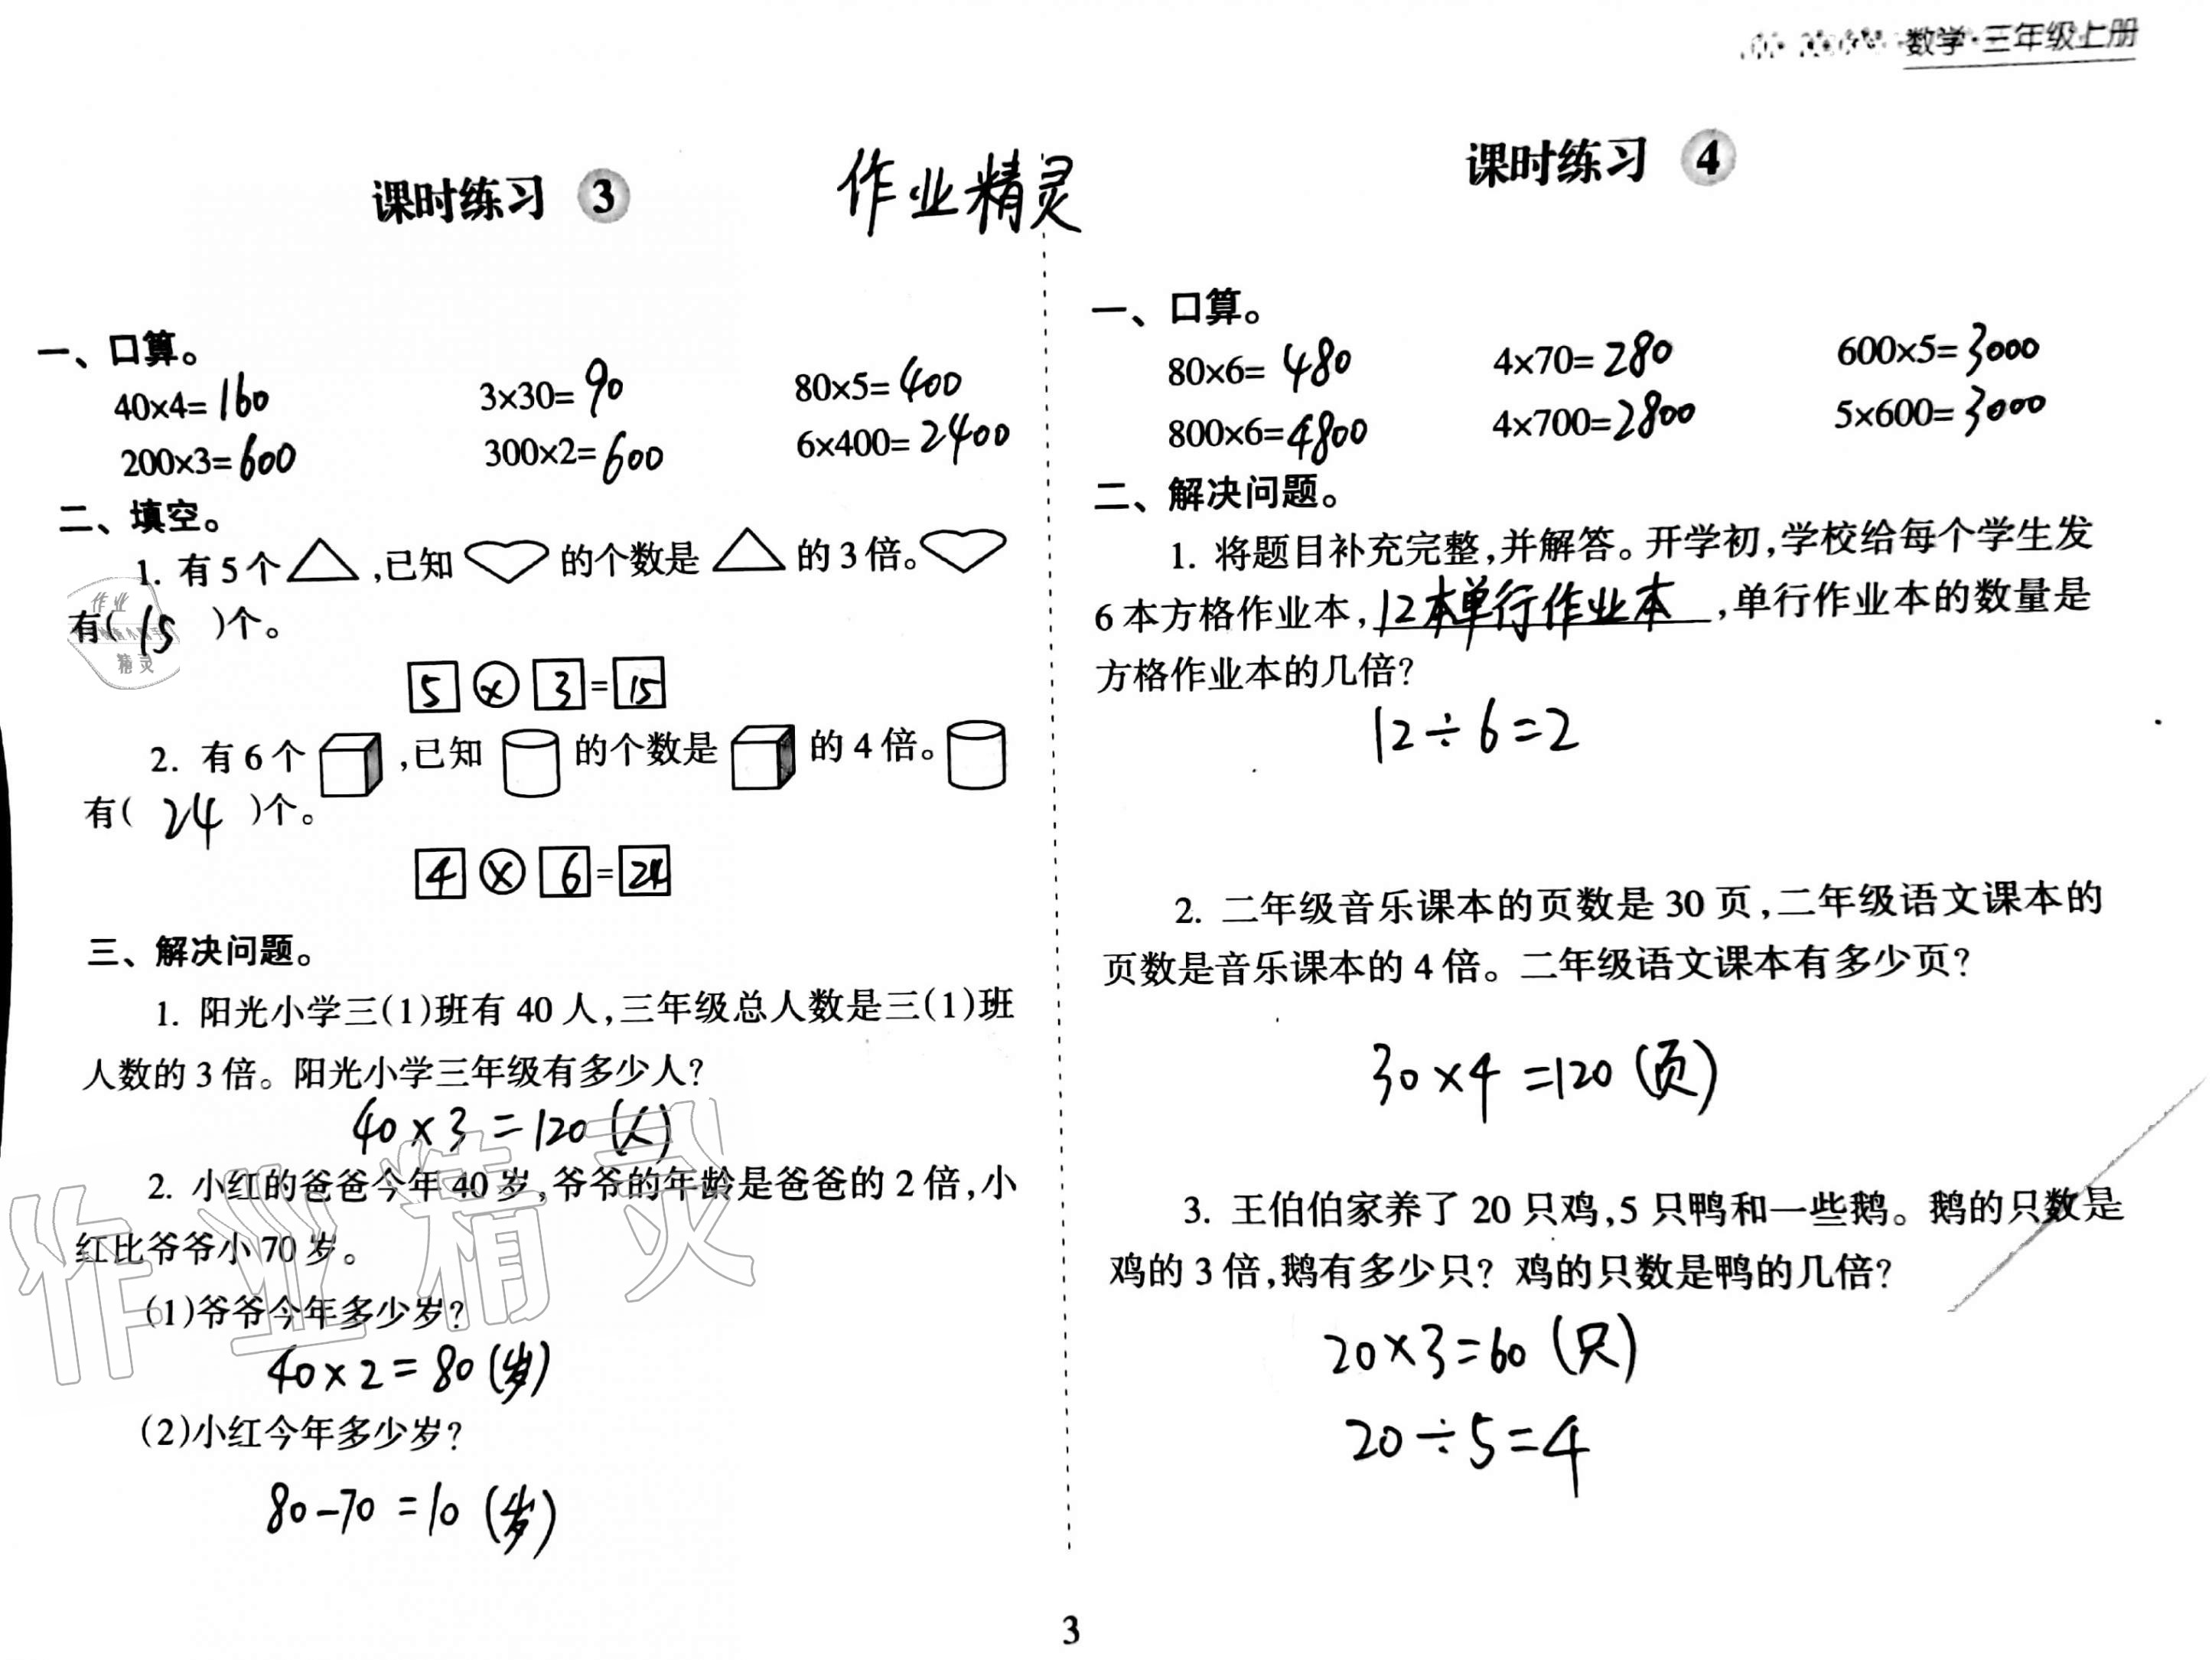 数学·三年级上册
作业精灵
课时练习 3
一、口算。
40×4=160 3×30=90 80×5=400
200×3=600 300×2=600 6×400=2400
二、填空。
1. 有5个△,已知♡的个数是△的3倍。♡
有(15)个。
5×3=15
2. 有6个,已知的个数是的4倍。
有(24)个。
4×6=24
三、解决问题。
1. 阳光小学三(1)班有40人,三年级总人数是三(1)班
人数的3倍。阳光小学三年级有多少人?
40×3=120(人)
2. 小红的爸爸今年40岁,爷爷的年龄是爸爸的2倍,小
红比爷爷小70岁。
(1)爷爷今年多少岁?
40×2=80(岁)
(2)小红今年多少岁?
80-70=10(岁)
作业精灵
作业
精灵
课时练习 4
一、口算。
80×6=480 4×70=280 600×5=3000
800×6=4800 4×700=2800 5×600=3000
二、解决问题。
1. 将题目补充完整,并解答。开学初,学校给每个学生发
6本方格作业本,12本单行作业本,单行作业本的数量是
方格作业本的几倍?
12÷6=2
2. 二年级音乐课本的页数是30页,二年级语文课本的
页数是音乐课本的4倍。二年级语文课本有多少页?
30×4=120(页)
3. 王伯伯家养了20只鸡,5只鸭和一些鹅。鹅的只数是
鸡的3倍,鹅有多少只?鸡的只数是鸭的几倍?
20×3=60(只)
20÷5=4
3